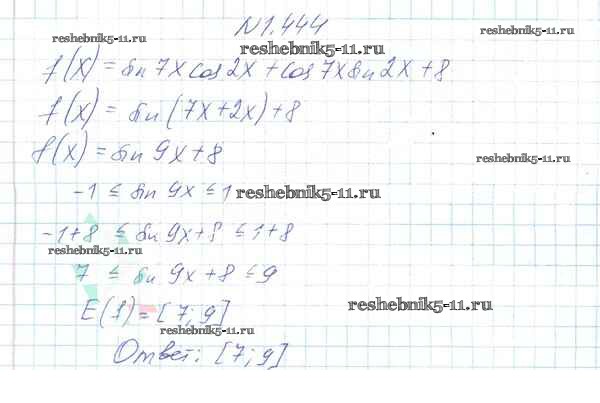 N1.444
reshebnik5-11.ru
reshebnik5-11.ru
reshebnik5-11.ru
f(x) = sin 7x cos 2x + cos 7x sin 2x + 8
f(x) = sin (7x + 2x) + 8
f(x) = sin 9x + 8
reshebnik5-11.ru
-1 ≤ sin 9x ≤ 1
reshebnik5-11.ru
-1 + 8 ≤ sin 9x + 8 ≤ 1 + 8
reshebnik5-11.ru
7 ≤ sin 9x + 8 ≤ 9
E(f) = [7; 9]
reshebnik5-11.ru
reshebnik5-11.ru
Ответ: [7; 9]